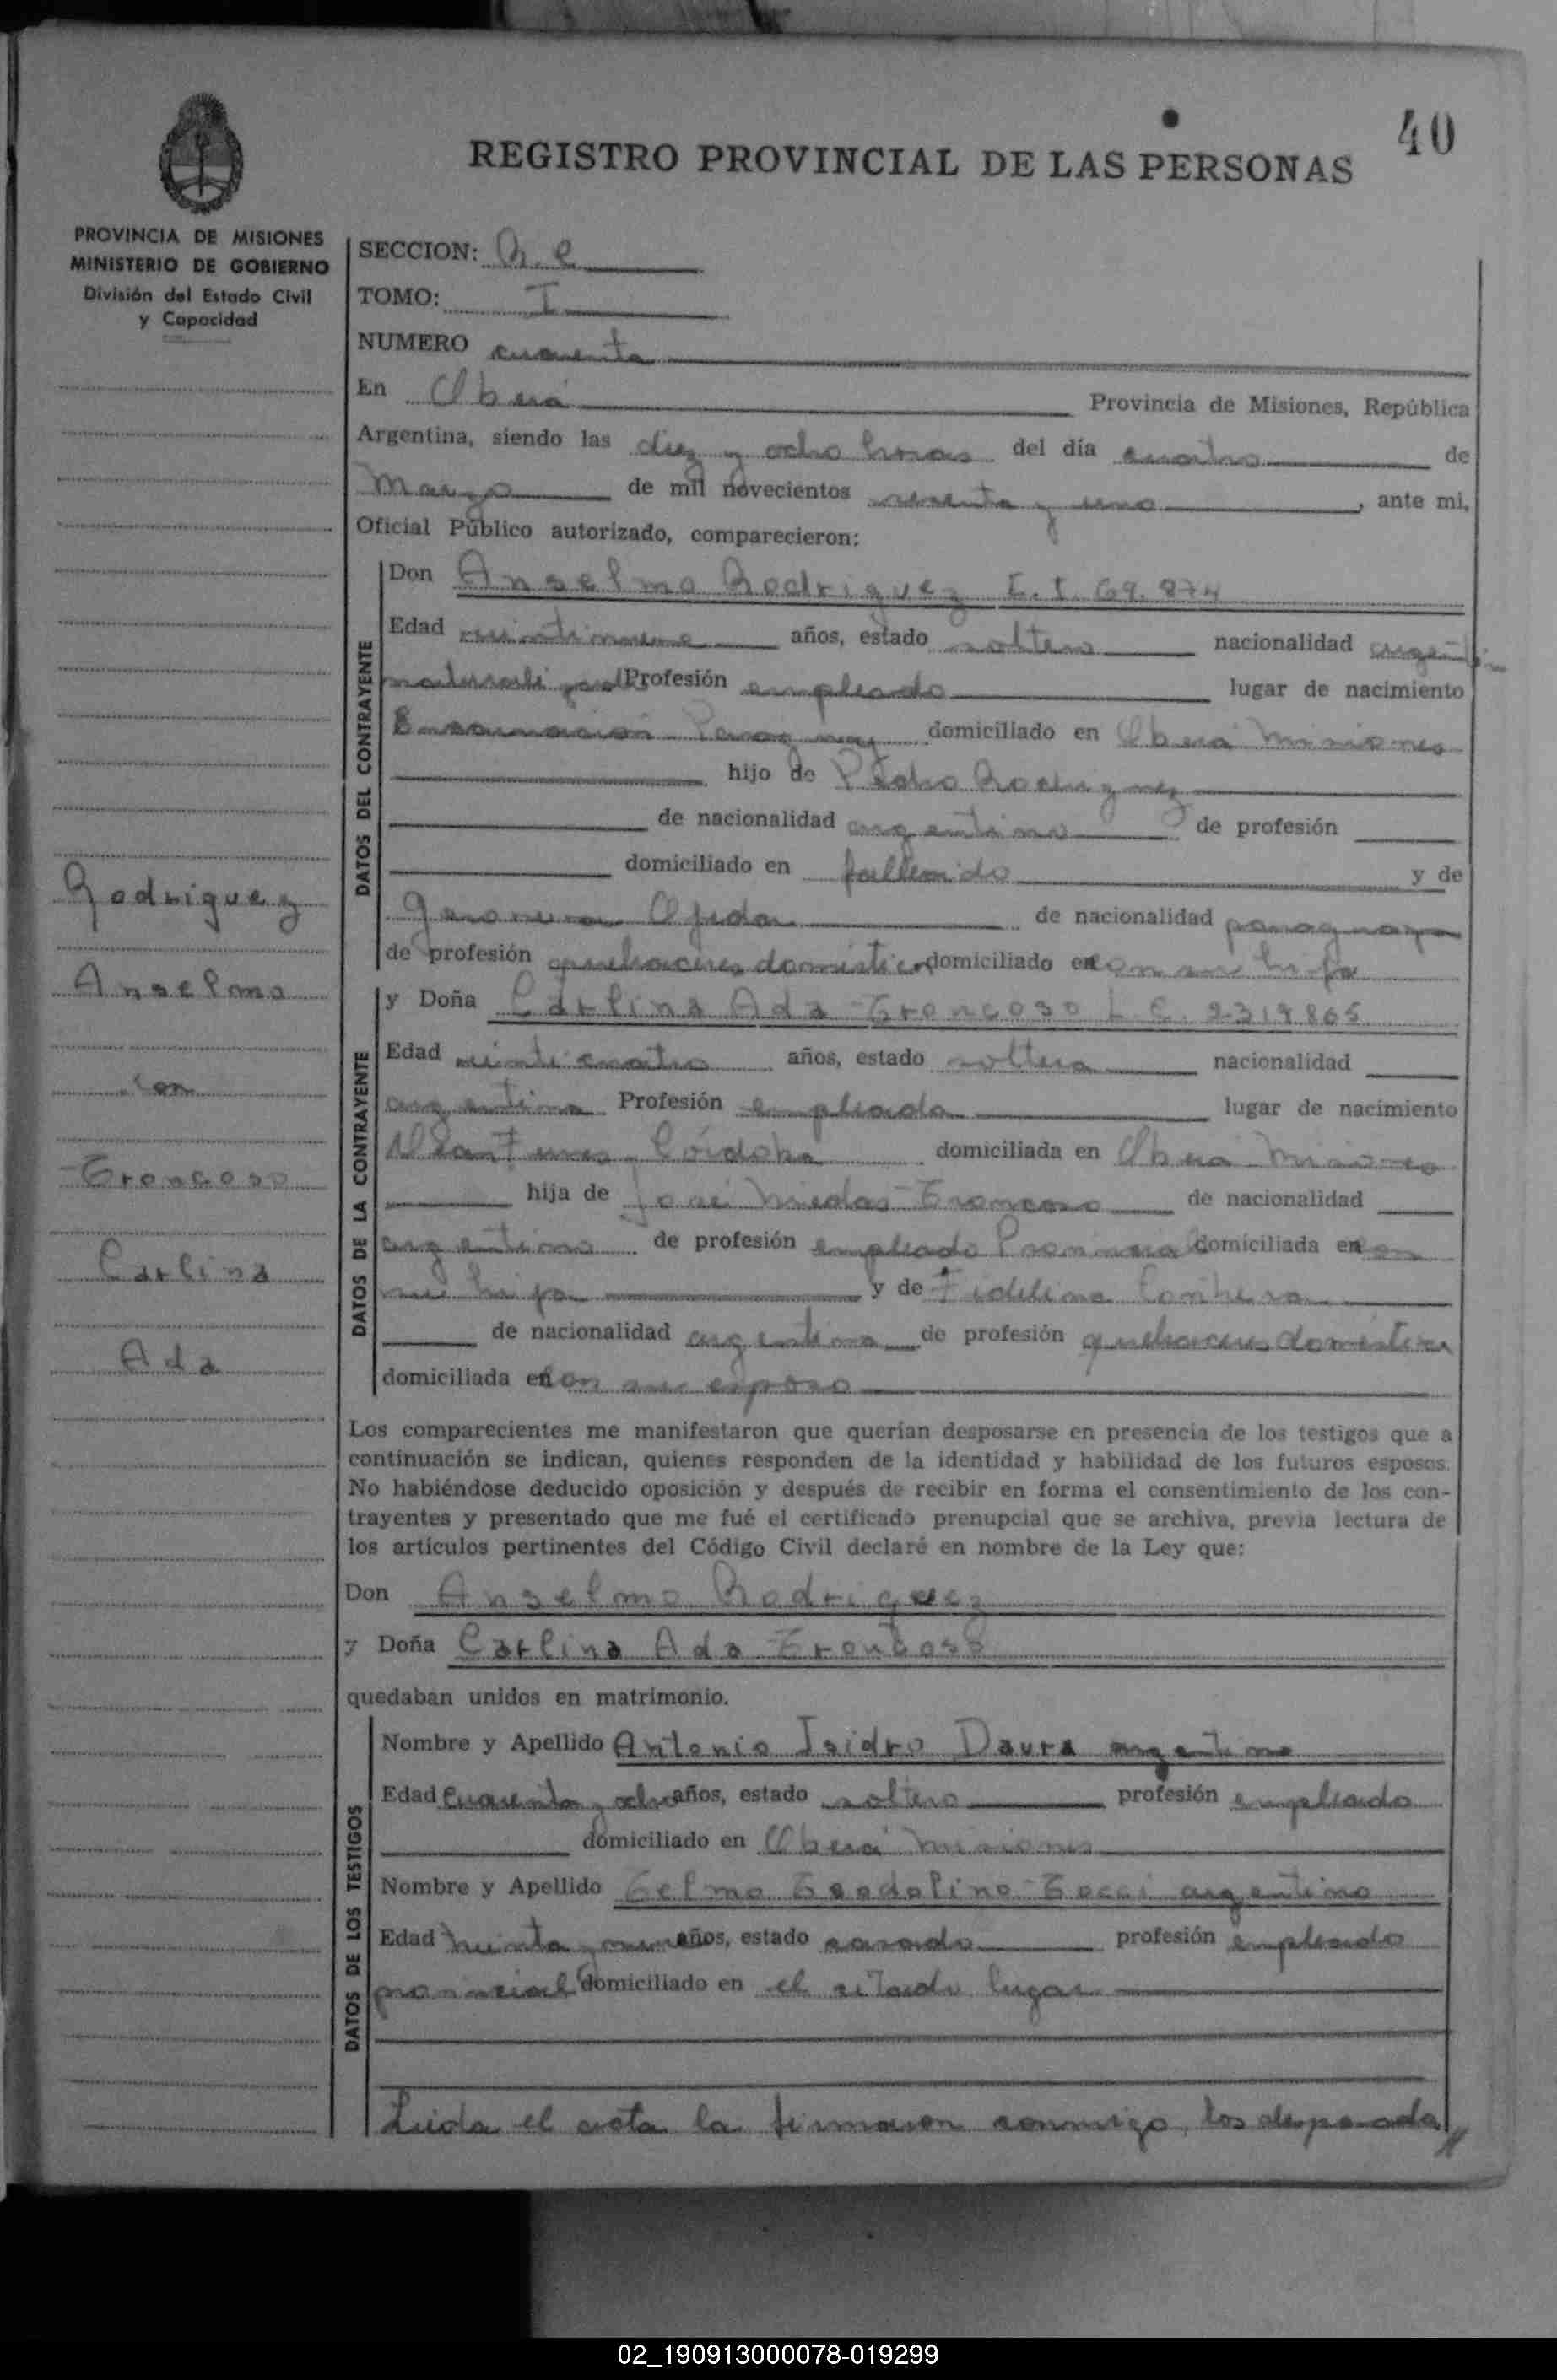 40
REGISTRO PROVINCIAL DE LAS PERSONAS
PROVINCIA DE MISIONES
MINISTERIO DE GOBIERNO
División del Estado Civil
y Capacidad
SECCION:
TOMO: I
NUMERO cuarenta
En Oberá Provincia de Misiones, República
Argentina, siendo las diez y ocho horas del día cuatro de
Marzo de mil novecientos sesenta y uno, ante mi,
Oficial Público autorizado, comparecieron:
DATOS DEL CONTRAYENTE
Don Anselmo Rodriguez 69.874
Edad veintinueve años, estado soltero nacionalidad argentino
naturalizado Profesión empleado lugar de nacimiento
Encarnación Paraguay domiciliado en Oberá Misiones
hijo de Pedro Rodriguez
de nacionalidad argentino de profesión
domiciliado en fallecido y de
Ojeda de nacionalidad paraguaya
de profesión quehaceres domésticos domiciliado en con su hijo
Rodriguez
Anselmo
con
Troncoso
Carlina
Ada
DATOS DE LA CONTRAYENTE
y Doña Carlina Ada Troncoso L.C. 2319865
Edad veinticuatro años, estado soltera nacionalidad
argentina Profesión empleada lugar de nacimiento
Córdoba domiciliada en Oberá Misiones
hija de José Troncoso de nacionalidad
argentino de profesión empleado Provincial domiciliada en con
su hija y de Fidelina
de nacionalidad argentina de profesión quehaceres domésticos
domiciliada en con su esposo
Los comparecientes me manifestaron que querían desposarse en presencia de los testigos que a
continuación se indican, quienes responden de la identidad y habilidad de los futuros esposos.
No habiéndose deducido oposición y después de recibir en forma el consentimiento de los con-
trayentes y presentado que me fué el certificado prenupcial que se archiva, previa lectura de
los artículos pertinentes del Código Civil declaré en nombre de la Ley que:
Don Anselmo Rodriguez
y Doña Carlina Ada Troncoso
quedaban unidos en matrimonio.
DATOS DE LOS TESTIGOS
Nombre y Apellido Antonio Isidro Daura argentino
Edad Cuarenta y ocho años, estado soltero profesión empleado
domiciliado en Oberá Misiones
Nombre y Apellido Telmo Teodolino Tocci argentino
Edad treinta y años, estado casado profesión empleado
provincial domiciliado en el citado lugar
Leida el acta la firmaron conmigo, los desposada
02_190913000078-019299